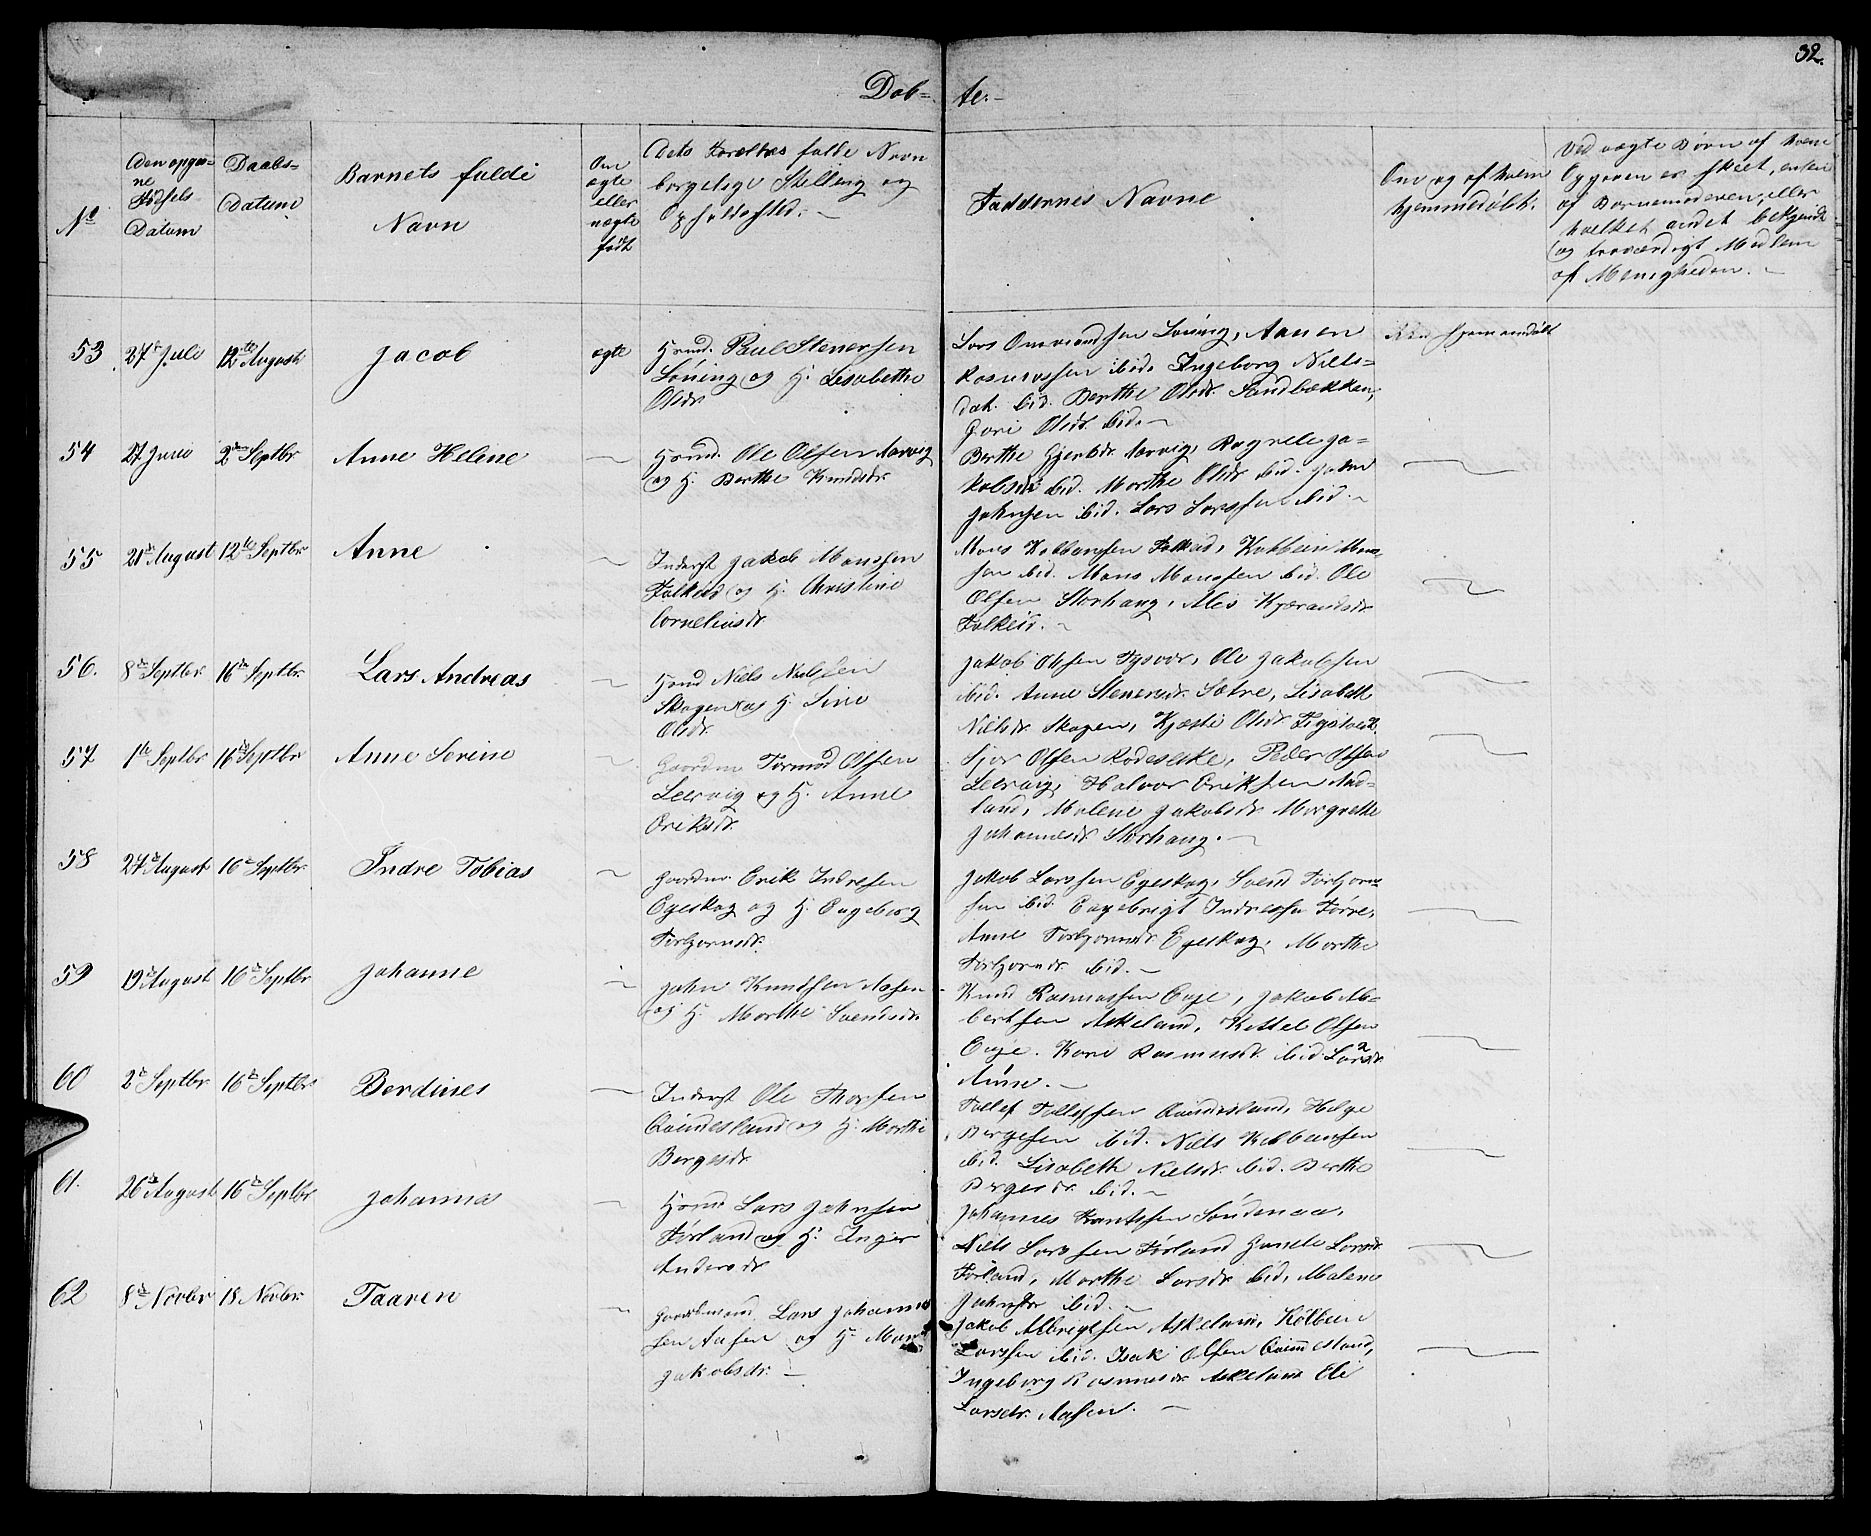 32.
Døb= te.-
No
Den opgiv=
ne
Fødsels=
Datum
Daabs=
Datum
Barnets fulde
Navn
Om
ægte
eller
uægte
født
Dets Forældres fulde Navn
borgelige Stilling og
Opholdssted. -
Faddernes Navne
Om og af hvem
hjemmedøbt.
Ved uægte Børn af hvem
Opgaven er skeet, enten
af Barnemoderen, eller
hvilket andet bekjendt
og troværdigt Medlem
af Menigheden. -
53 27de Juli 12te August Jacob ægte
Hmd. Poul Stenersen
Løning og H. Lisabethe
Olsdr
Lars Ommundsen Løning, Aanen
Rasmussen ibid. Ingeborg Niels=
dat. ibid. Berthe Olsdr. Sandbækken,
Guri Olsdr ibid. -
hjemmedøbt
54 27 Juni 2den Septbr Anne Helene —
Hmd. Ole Olsen Aarvig
og H. Berthe Knudsdr
Berthe Gjertsdr. Aarvig, Ragnele Ja=
kobsdr ibid. Marthe Olsdr ibid. John
Johnsen ibid. Lars Larssen ibid. -
55 21de August 12te Septbr Anne —
Inderst Jakob Monssen
Falkeid og H. Christine
Corneliusdr
Mons Kolbensen Falkeid, Kolbein Mons=
sen ibid. Mons Monssen ibid. Ole
Olsen Storhaug, Alis Kjerandsdr
Falkeid. -
56. 8de Septbr 16de Septbr. Lars Andreas —
Hmd Niels Nielsen
Skogen og H. Sine
Olsdr.
Jakob Olsen Tysvær, Ole Jakobsen
ibid. Anne Stenersdr. Sætre, Lisabeth
Nielsdr Skogen, Olsdr
57 1ste Septbr 16de Septbr Anne Serine —
Gaardm Tormod Olsen
Leervig og H. Anne
Eriksdr.
Sjor Olsen Peder Olsen
Leervig, Halvor Eriksen Aad=
land, Malene Jakobsdr Margrethe
Johannesdr Storhaug. -
58 27de August 16de Septbr Indre Tobias —
Gaardm. Erik Indresen
Egeskog og H. Engeborg
Torbjørnsdr.
Jakob Larssen Egeskog, Svend Torbjørn=
sen ibid. Engebrigt Indresen Førre,
Anne Torbjørnsdr Egeskog, Marthe
Torbjørnsdr ibid. -
59 19de August 16de Septbr Johanne —
John Knudsen Aasen
og H. Marthe Svendsdr.
Knud Rasmussen Eeje, Jakob Al=
bertsen Askeland, Kittel Olsen
Eeje. Kari Rasmusdr ibid Larsdr
60 2de Septbr. 16de Septbr Berdines —
Inderst Ole Thorsen
Qvindesland og H. Marthe
Bergesdr
Tollef Tollefsen Qvindesland, Helge
Bergesen ibid. Niels Kolbensen
ibid. Lisabeth Nielsdr ibid. Berthe
Bergesdr ibid. -
61. 26de August 16de Septbr Johanna —
Hmd Lars Johnsen
Førland og H. Inger
Andersdr
Johannes Knutssen Søndenaa,
Niels Larssen Førland Gunele Larsdr
Førland, Marthe Larsdr ibid. Malene
Johnsdr ibid. -
62 8de Novbr 18 Novbr. Taaren —
Gaardmand Lars Johannes
sen Aasen og H. Marthe
Jakobsdr. -
Jakob Albrigtsen Askeland, Kolbein
Larssen ibid. Isak Olsen Qvindesland,
Ingeborg Rasmusdr Askeland Eli
Larsdr. Aasen. -